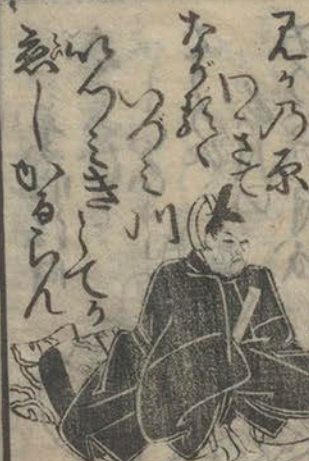 みかの原
わきて
ながるゝ
いづみ川
いつみきとてか
恋しかるらん